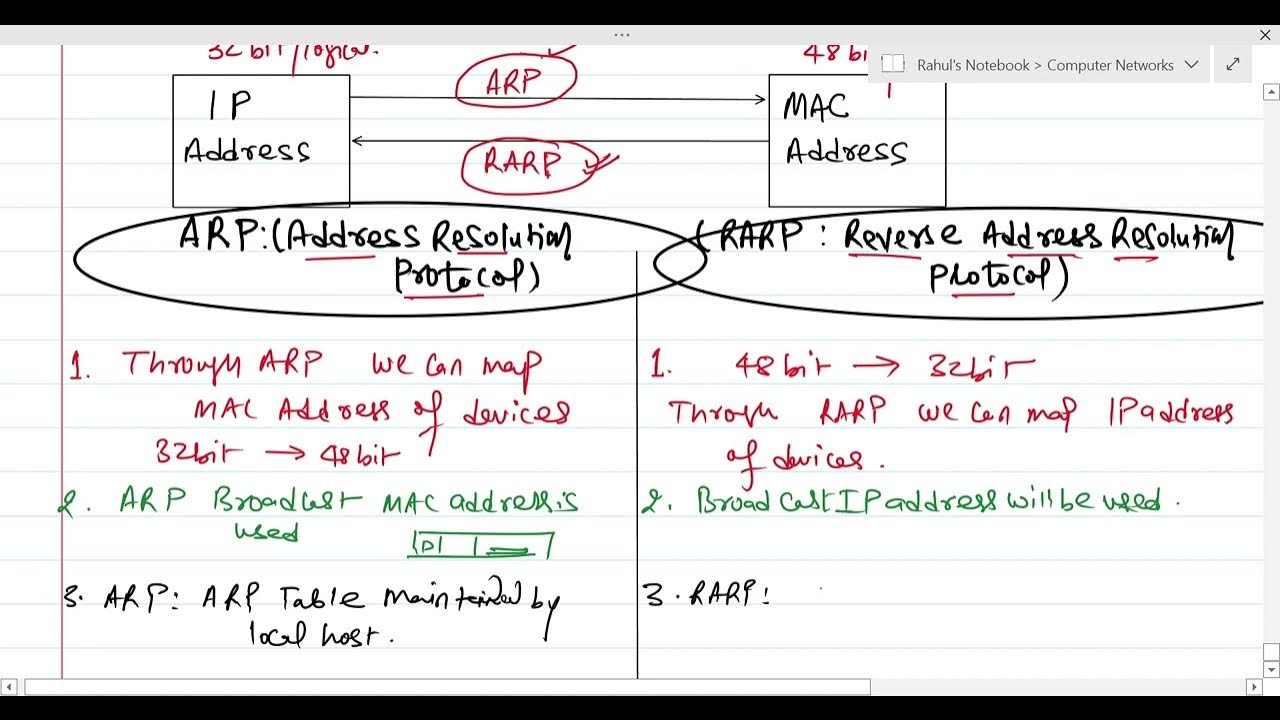 32 bit/logical.
48 bi
Rahul's Notebook > Computer Networks
ARP
IP
Address
MAC
Address
RARP
ARP:(Address Resolution
Protocol)
(RARP : Reverse Address Resolution
Protocol)
1. Through ARP we can map
MAC Address of devices
32bit → 48bit
2. ARP Broadcast MAC address is
used
D
3. ARP: ARP Table maintained by
local host.
1. 48bit → 32bit
Through RARP we can map IP address
of devices.
2. Broadcast IP address will be used.
3. RARP: